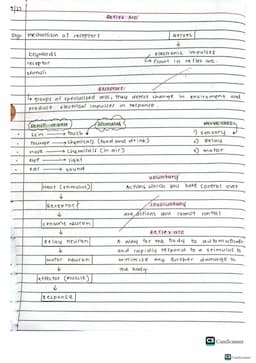 REFLEX ARC
mechanism of receptors
nerves
keywords
electronic impulses
receptor
found in reflex arc.
stimuli
Receptors:
groups of specialised cells, they detect change in environment and
produce electrical impulses in response.
stimulus
skin → touch
1) sensory
tounge → chemicals (food and drink)
2) Relay
nose → chemicals (in air)
3) motor
eye → light
ear → sound
voluntary
Heat (stimulus)
Actions which you have control over
Receptor
involuntary
sensory neuron
Reflex arc
Relay neuron
A way for the body to automatically
and rapidly respond to a stimulus to
motor neuron
minimise any further damage to
the body.
effector (muscle)
Response
CS CamScanner
CS CamScanner